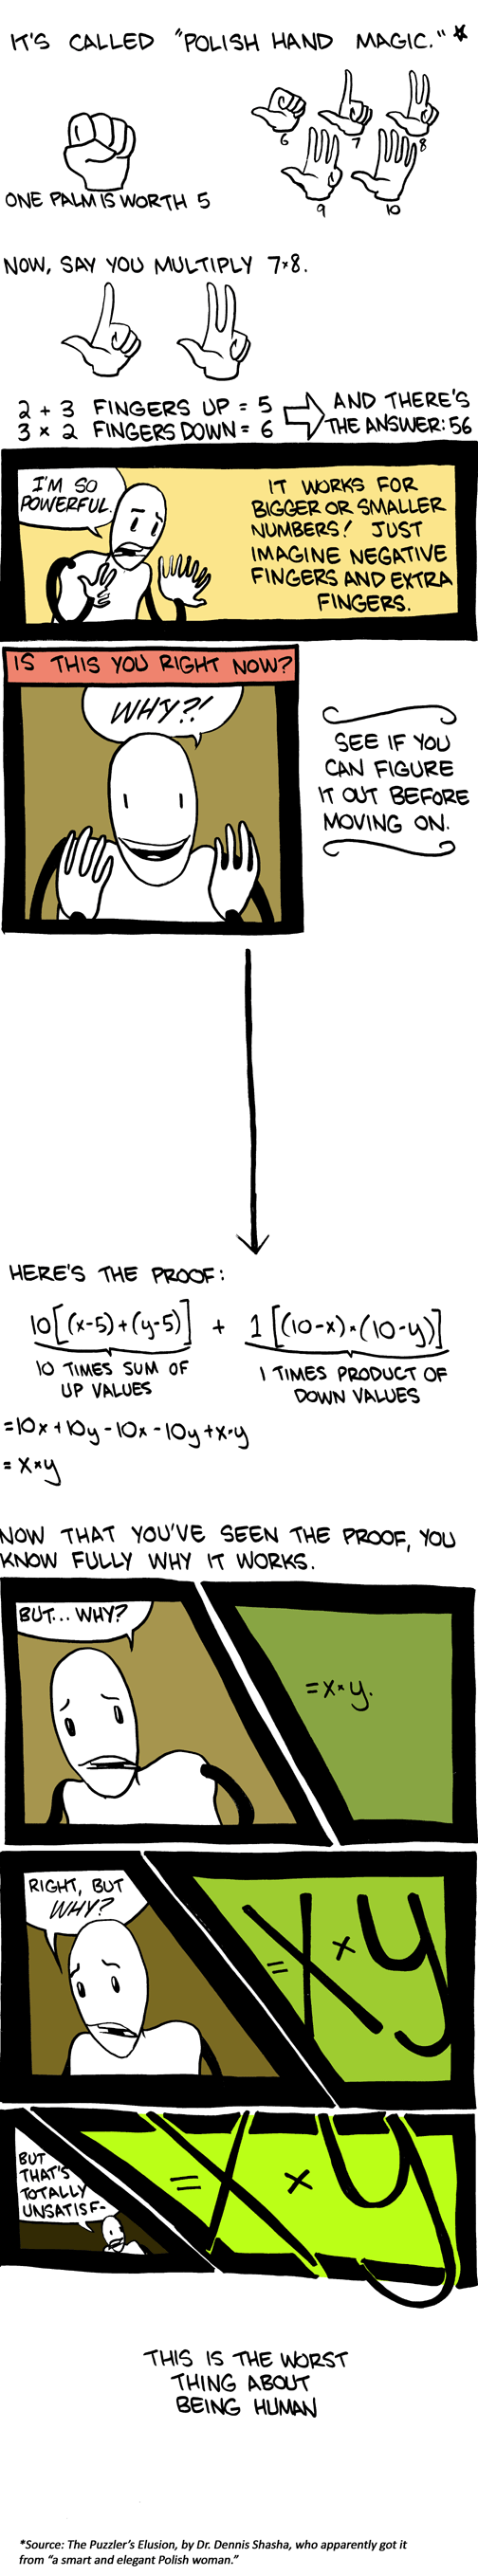 IT'S CALLED "POLISH HAND MAGIC."*
6
7
8
9
10
ONE PALM IS WORTH 5
NOW, SAY YOU MULTIPLY 7×8.
2 + 3 FINGERS UP = 5
3 × 2 FINGERS DOWN = 6
AND THERE'S
THE ANSWER: 56
I'M SO
POWERFUL.
IT WORKS FOR
BIGGER OR SMALLER
NUMBERS! JUST
IMAGINE NEGATIVE
FINGERS AND EXTRA
FINGERS.
IS THIS YOU RIGHT NOW?
WHY?!
SEE IF YOU
CAN FIGURE
IT OUT BEFORE
MOVING ON.
HERE'S THE PROOF:
10[(x-5)+(y-5)] + 1[(10-x)×(10-y)]
10 TIMES SUM OF
UP VALUES
1 TIMES PRODUCT OF
DOWN VALUES
=10x+10y-10x-10y+x×y
= x×y
NOW THAT YOU'VE SEEN THE PROOF, YOU
KNOW FULLY WHY IT WORKS.
BUT... WHY?
=x×y.
RIGHT, BUT
WHY?
=x×y
BUT
THAT'S
TOTALLY
UNSATISF-
=x×y
THIS IS THE WORST
THING ABOUT
BEING HUMAN
*Source: The Puzzler's Elusion, by Dr. Dennis Shasha, who apparently got it
from "a smart and elegant Polish woman."